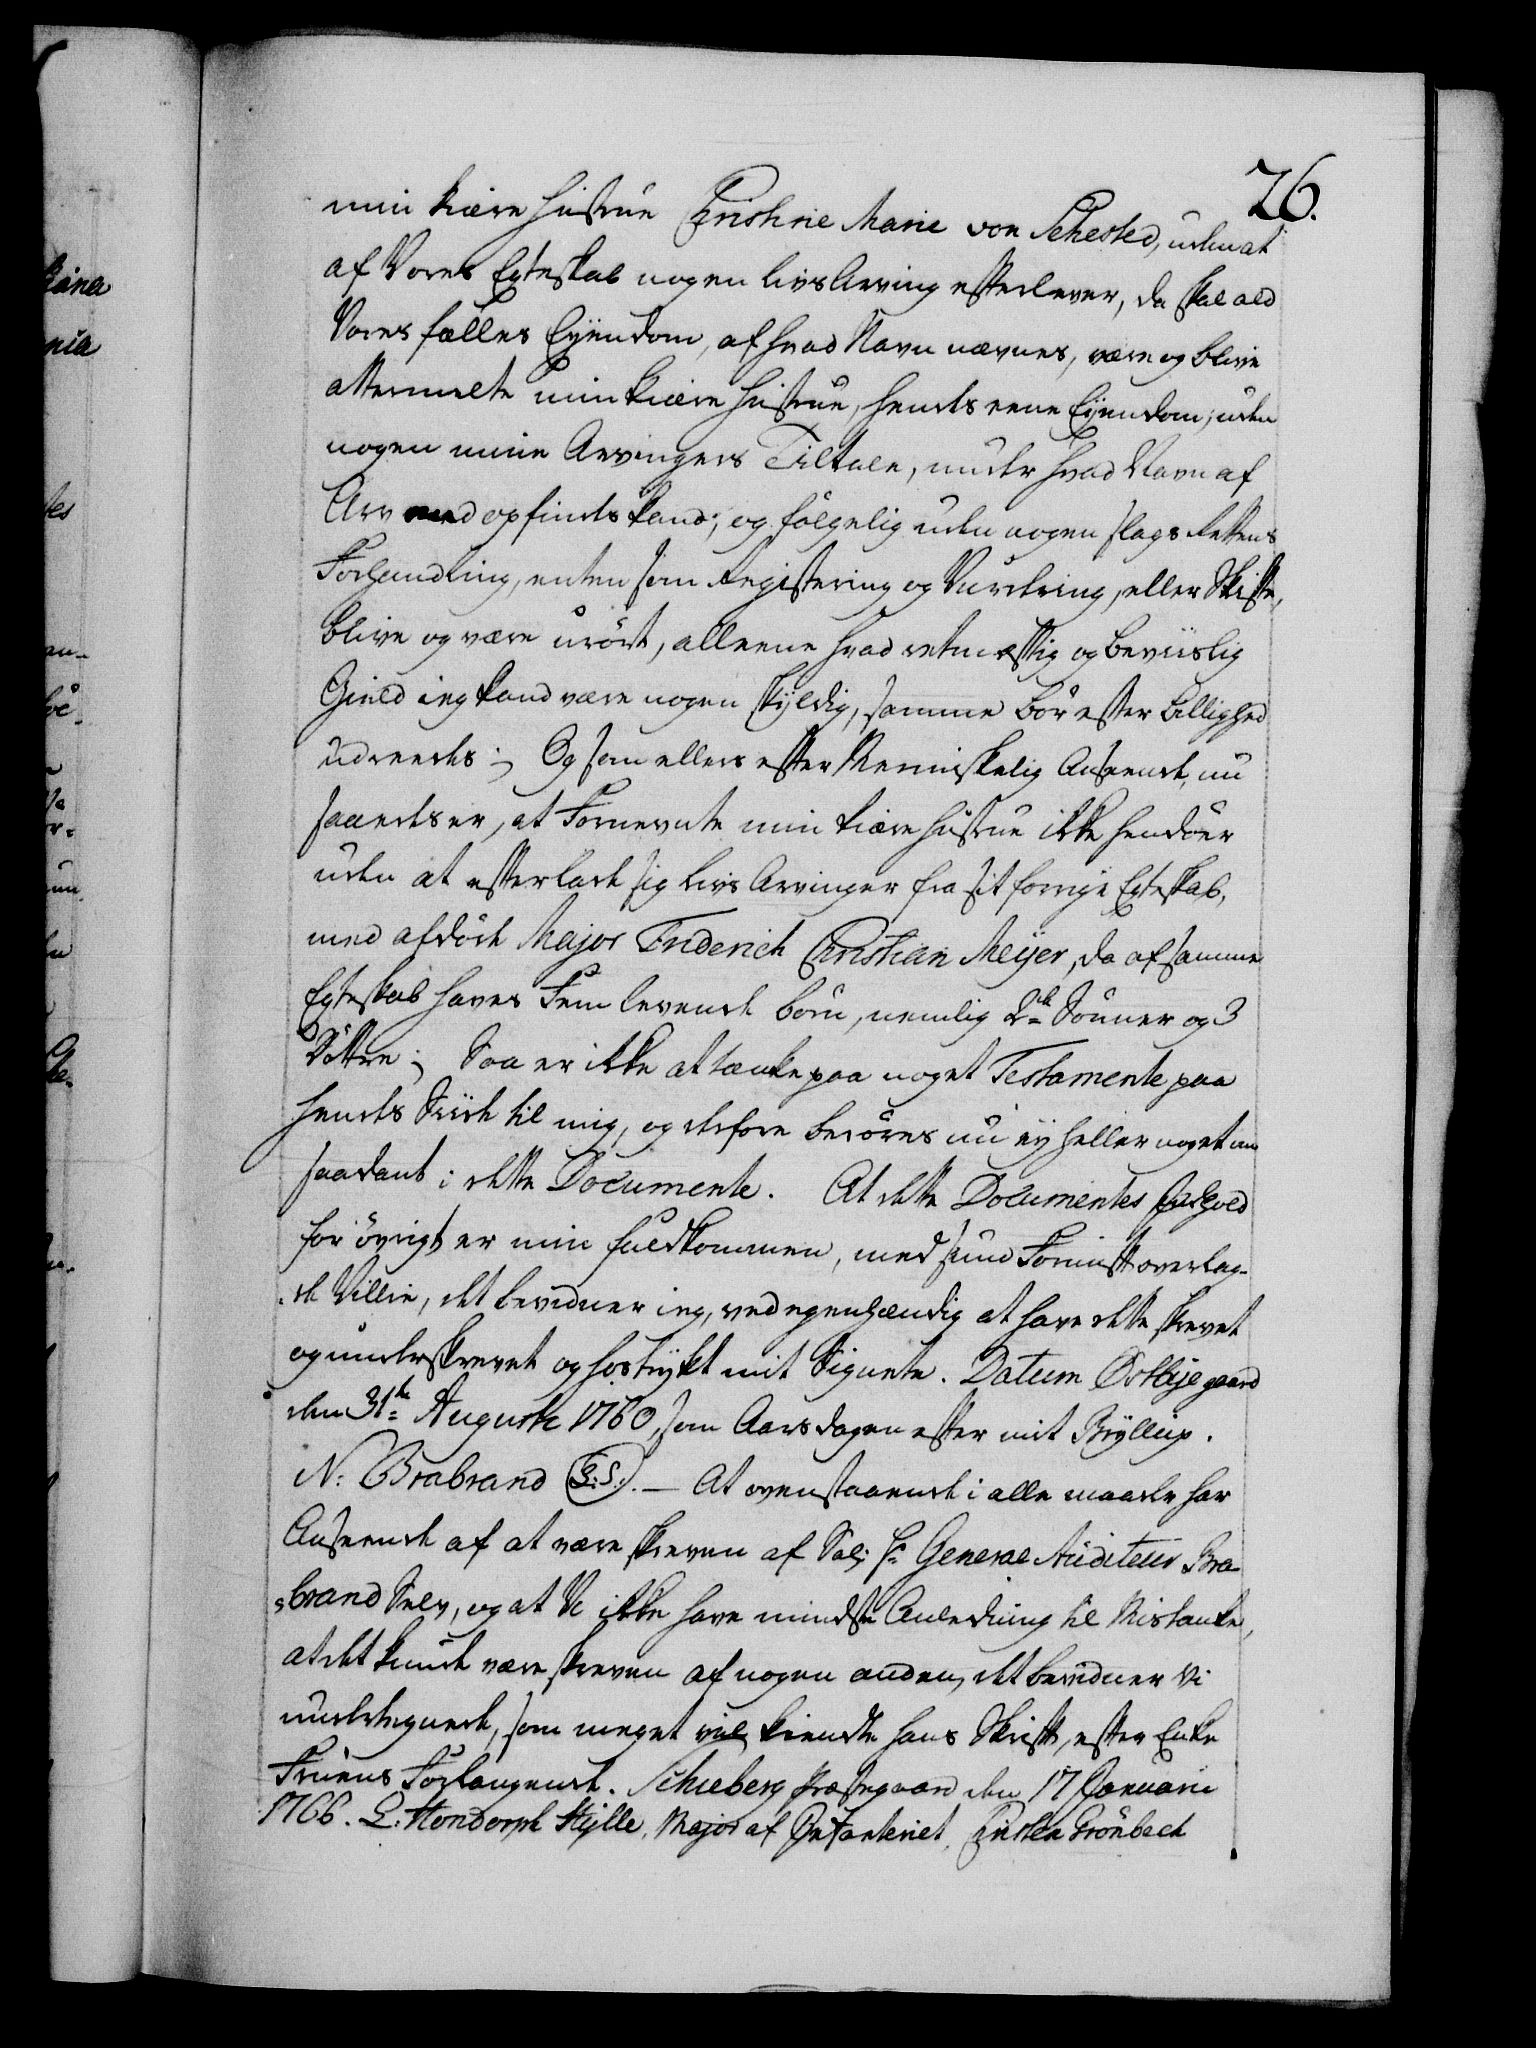 26.
min kiære Hustrue Christine Marie von Sehested, uden at
af Vores Egteskab nogen Livs Arving efterlever, da skal ald
Vores fælles Eyendom, af hvad Navn nævnes, være og blive
attermelte min kiære Hustrue, hendes eene Eyendom, uden
nogen mine Arvingers Tiltale, under hvad Navn af
Arv med opfindes kand; og følgelig uden nogen slags Rettens
Forhandling, enten som Registering og Vurdering, eller Skifte,
blive og være urørt, alleene hvad retmæssig og beviislig
Gield ieg kand være nogen skyldig, samme bør efter billighed
udreedes; Og som ellers efter Menniskelig Anseende, nu
saaledes er, at Fornevnte min kiære Hustrue ikke hendøer
uden at efterlade sig Livs Arvinger fra sit forrige Egteskab,
med afdøde Major Friderich Christian Meyer, da af samme
Egteskab haves Fem levende børn, nemlig 2de Sønner og 3
Døttre; Saa er ikke at tænke paa noget Testamente paa
hendes Siide til mig, og derfore berøres nu ey heller noget om
saadant i dette Documente. At dette Documentes Indhold
for øvrigt er min fuldkommen, med sund Fornuft overlag-
de Villie, det bevidner ieg, ved egenhændig at have dette skrevet
og underskrevet og hostrykt mit Signete. Datum Østbyegaard
den 31te Augusti 1760, som Aarsdagen efter mit Bryllup.
N: Brabrand (L.S.). — At ovenstaaende i alle maade har
Anseende af at være skreven af Sal: Hr General Auditeur Bra-
brand Selv, og at Vi ikke have mindste Anledning til Mistanke,
at det kunde være skreven af nogen anden, det bevidner Vi
undertegnede, som meget vel kiendte hans Skrift, efter Enke
Fruens Forlangende. Schieberg Præstegaard den 17 Januarii
1766. L. Hondorph Hylle, Major af Infanteriet, Christen Grönbech